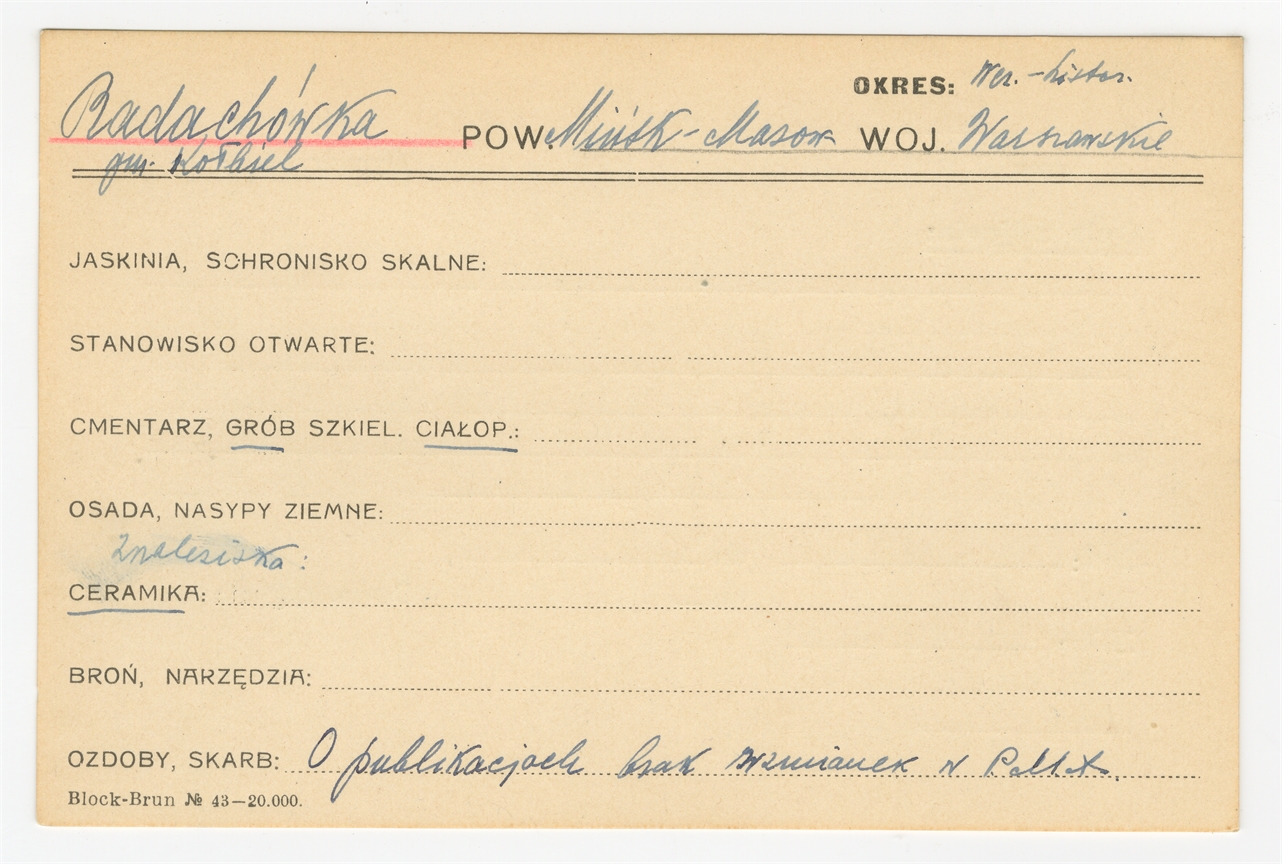 OKRES: Wcz.-histor.
Radachówka POW. Mińsk-Masow WOJ. Warszawskie
gm. Kołbiel
JASKINIA, SCHRONISKO SKALNE:
STANOWISKO OTWARTE:
CMENTARZ, GRÓB SZKIEL. CIAŁOP.:
OSADA, NASYPY ZIEMNE:
Znalesiska:
CERAMIKA:
BROŃ, NARZĘDZIA:
OZDOBY, SKARB: O publikacjach brak wzmianek w P.M.A.
Block-Brun № 43—20.000.